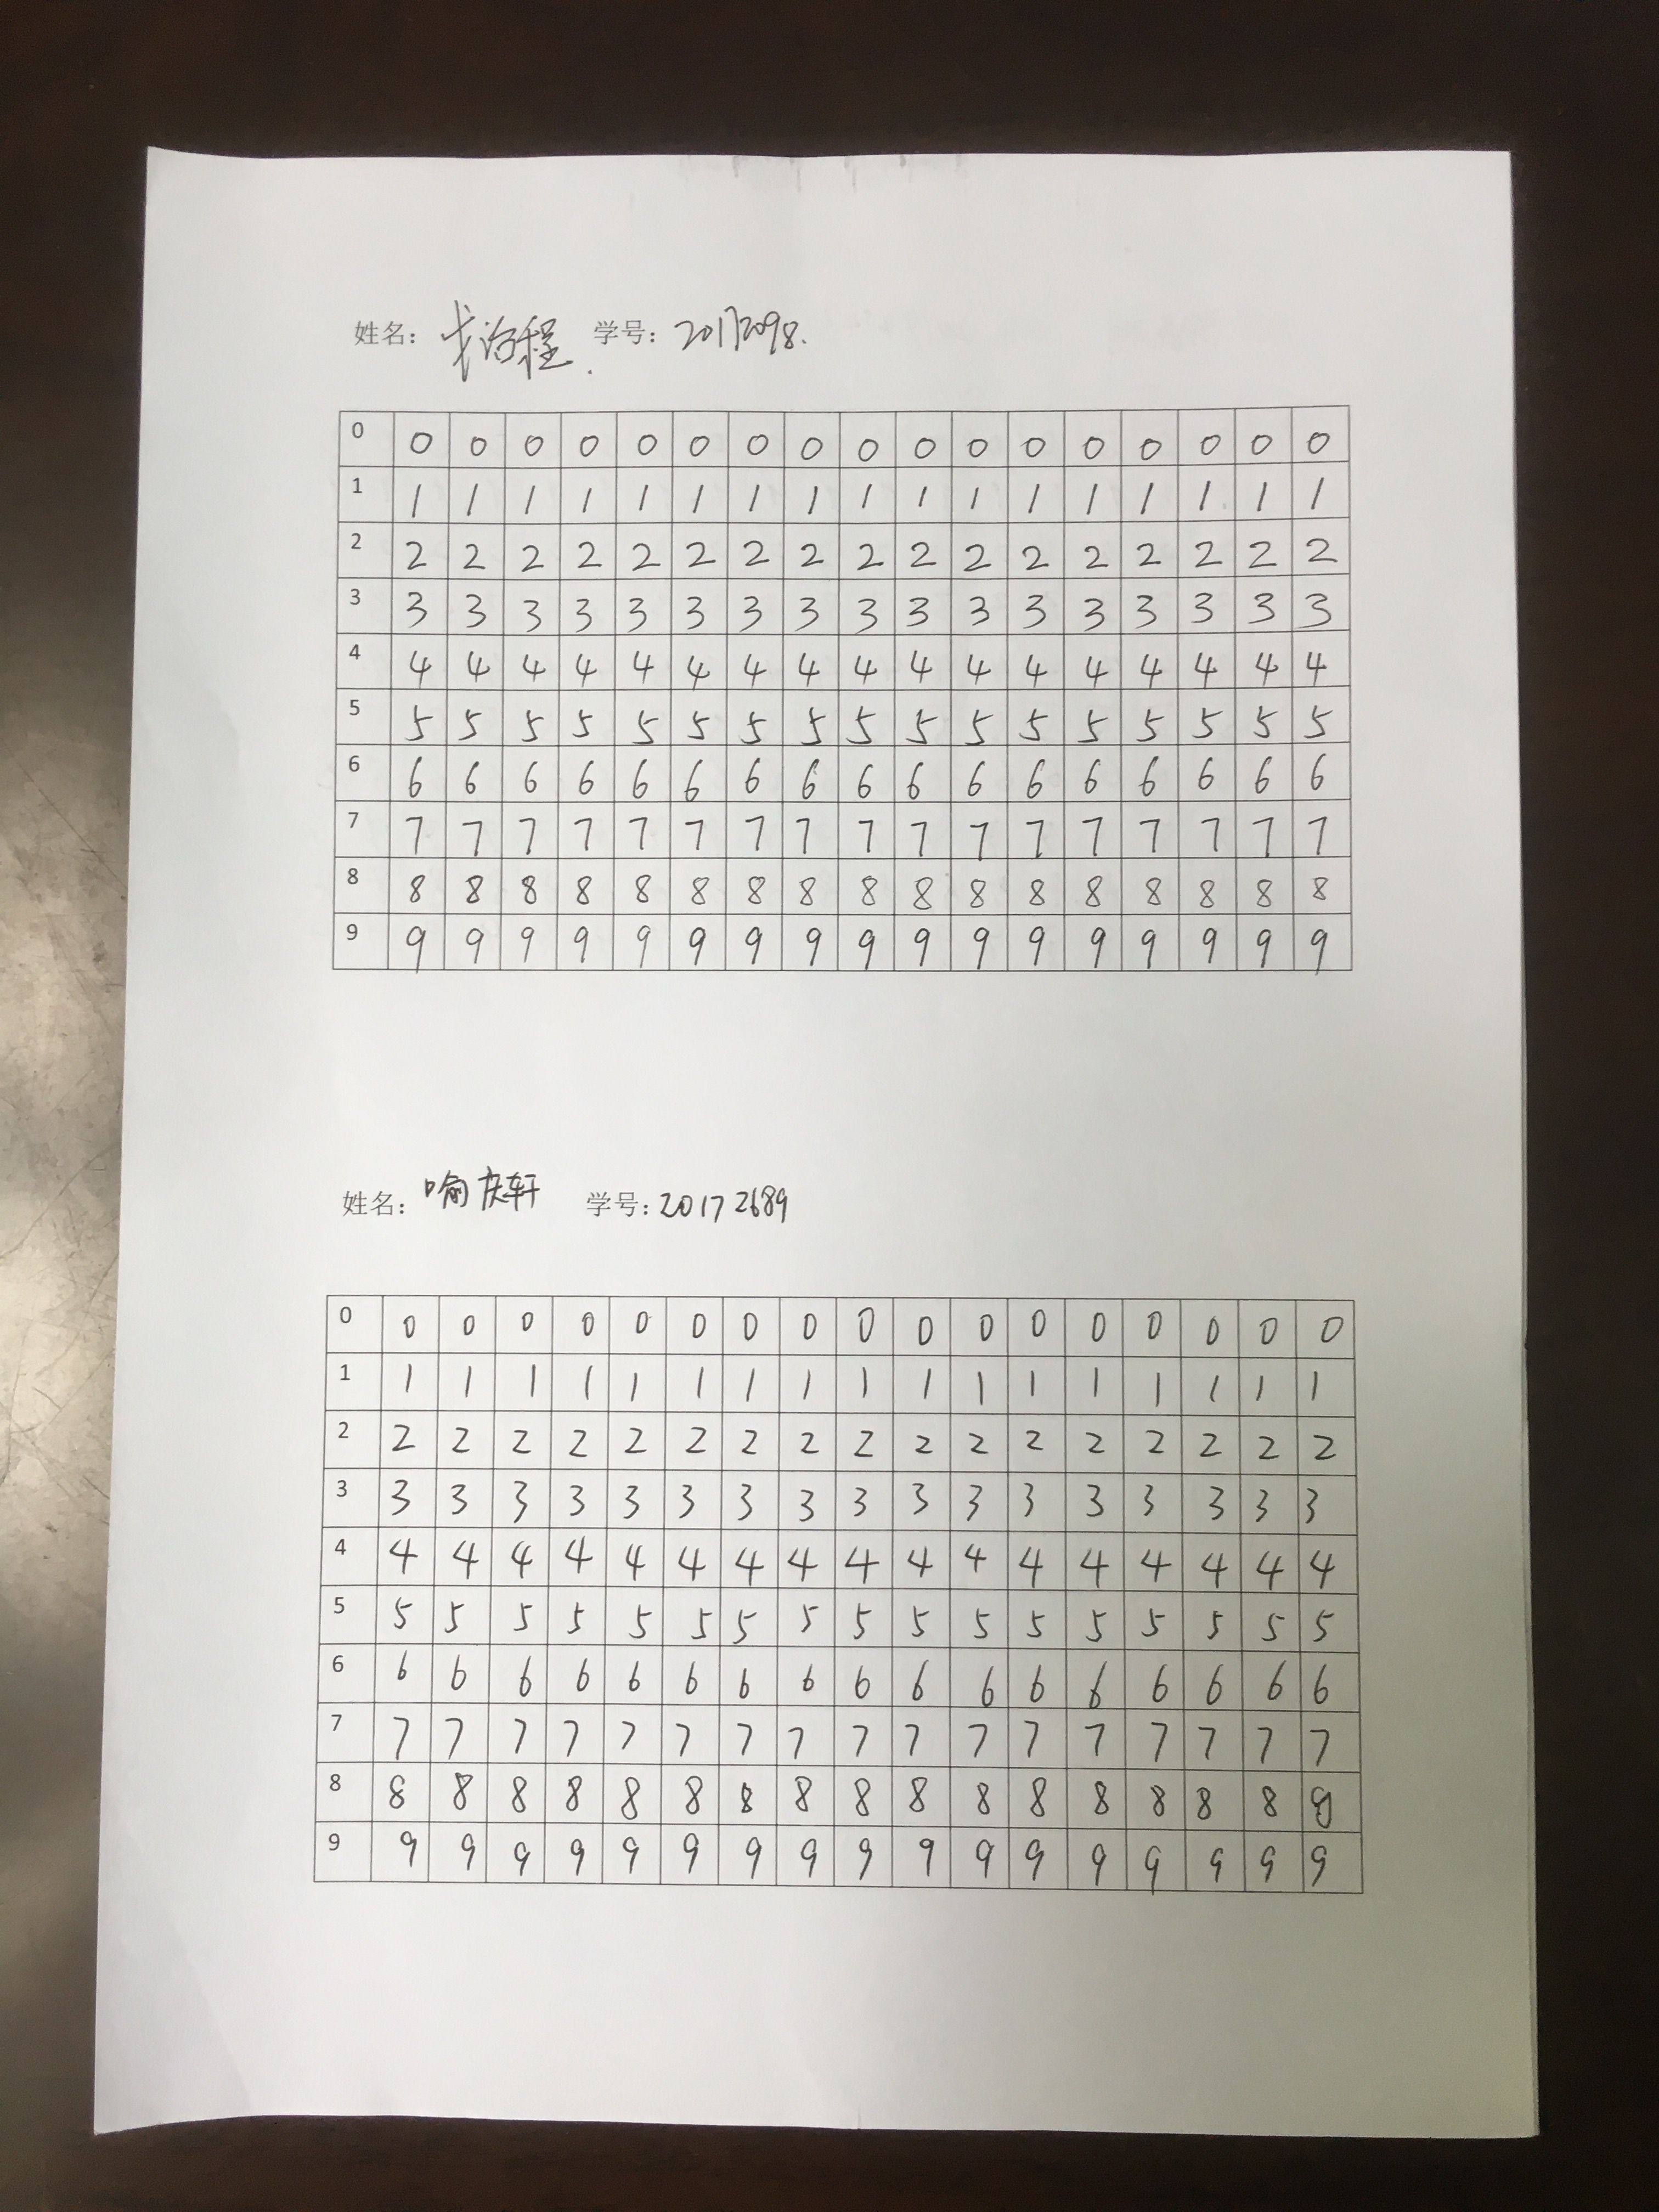 姓名： 学号：20172098.
0 0 0 0 0 0 0 0 0 0 0 0 0 0 0 0 0 0
1 1 1 1 1 1 1 1 1 1 1 1 1 1 1 1 1 1
2 2 2 2 2 2 2 2 2 2 2 2 2 2 2 2 2 2
3 3 3 3 3 3 3 3 3 3 3 3 3 3 3 3 3 3
4 4 4 4 4 4 4 4 4 4 4 4 4 4 4 4 4 4
5 5 5 5 5 5 5 5 5 5 5 5 5 5 5 5 5 5
6 6 6 6 6 6 6 6 6 6 6 6 6 6 6 6 6 6
7 7 7 7 7 7 7 7 7 7 7 7 7 7 7 7 7 7
8 8 8 8 8 8 8 8 8 8 8 8 8 8 8 8 8 8
9 9 9 9 9 9 9 9 9 9 9 9 9 9 9 9 9 9
姓名：喻庆轩 学号：20172689
0 0 0 0 0 0 0 0 0 0 0 0 0 0 0 0 0 0
1 1 1 1 1 1 1 1 1 1 1 1 1 1 1 1 1 1
2 2 2 2 2 2 2 2 2 2 2 2 2 2 2 2 2 2
3 3 3 3 3 3 3 3 3 3 3 3 3 3 3 3 3 3
4 4 4 4 4 4 4 4 4 4 4 4 4 4 4 4 4 4
5 5 5 5 5 5 5 5 5 5 5 5 5 5 5 5 5 5
6 6 6 6 6 6 6 6 6 6 6 6 6 6 6 6 6 6
7 7 7 7 7 7 7 7 7 7 7 7 7 7 7 7 7 7
8 8 8 8 8 8 8 8 8 8 8 8 8 8 8 8 8 8
9 9 9 9 9 9 9 9 9 9 9 9 9 9 9 9 9 9